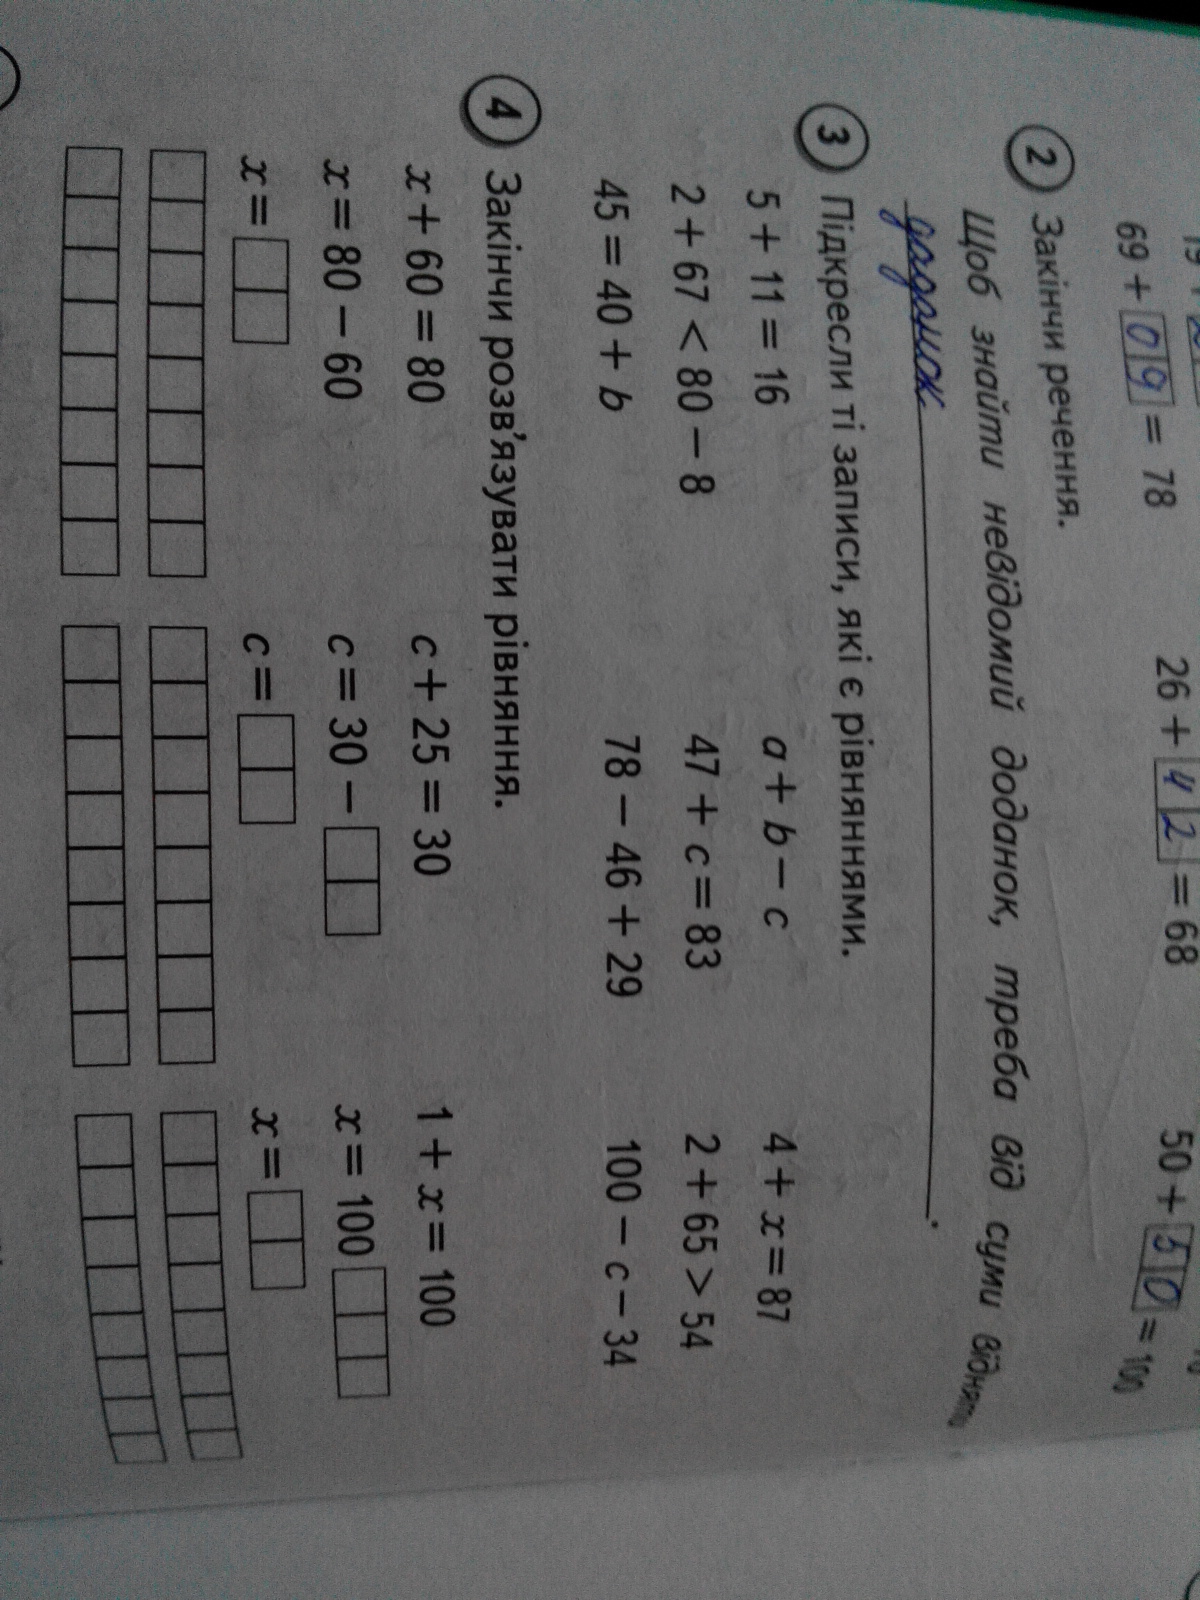 69 + 09 = 78 26 + 42 = 68 50 + 50 = 100
2 Закінчи речення.
Щоб знайти невідомий доданок, треба від суми відняти
доданок.
3 Підкресли ті записи, які є рівняннями.
5 + 11 = 16 a + b − c 4 + x = 87
2 + 67 < 80 − 8 47 + c = 83 2 + 65 > 54
45 = 40 + b 78 − 46 + 29 100 − c − 34
4 Закінчи розв'язувати рівняння.
x + 60 = 80 c + 25 = 30 1 + x = 100
x = 80 − 60 c = 30 − x = 100
x = c = x =